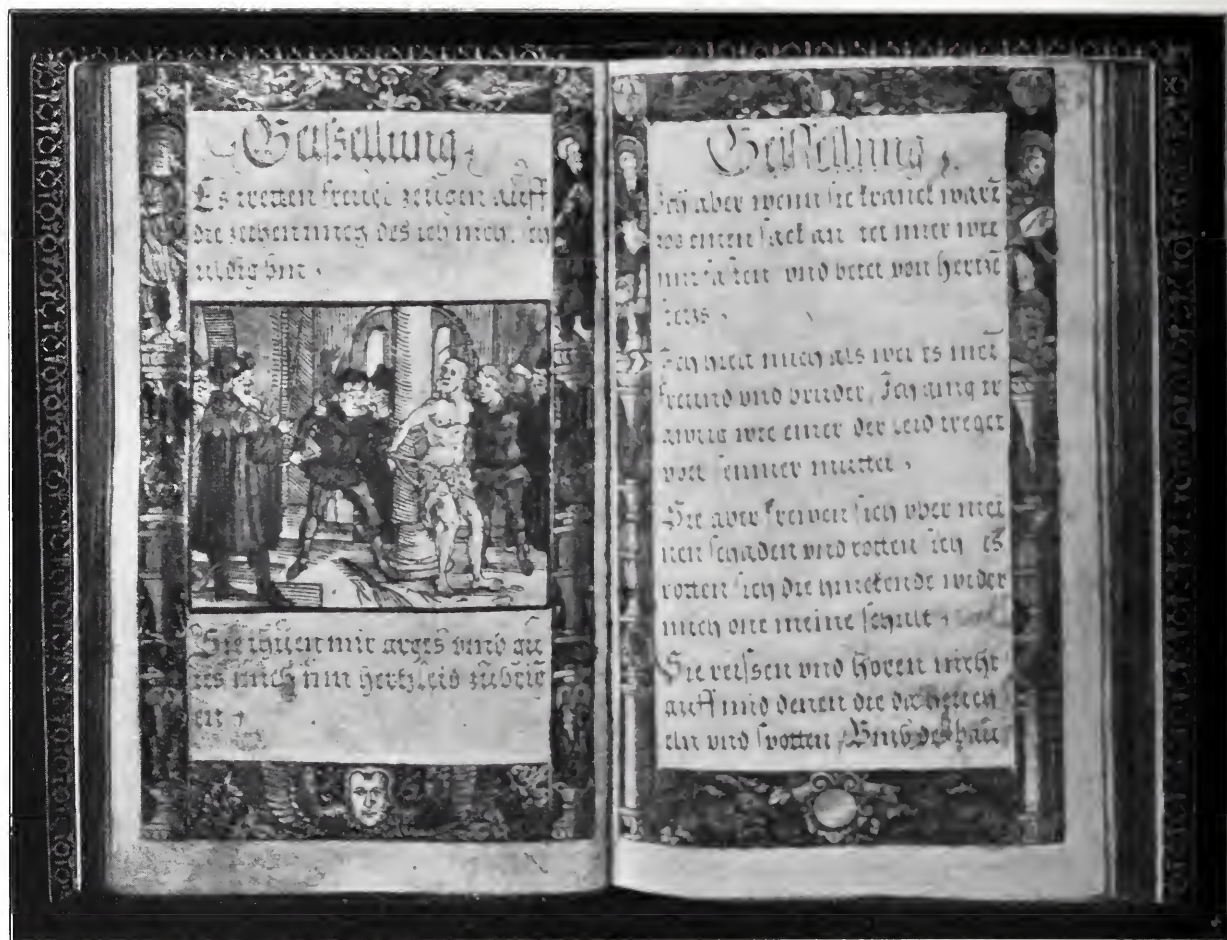 Geisselung
Es tretten freuel zeugen auff
die zeihen mich des ich nich. sch
uldig bin.
Sie thuen mir arges vmb gu
tes mich inn hertzleid zubrin
en
Geisselung
Ich aber wenn sie kranck warē
einen sack an tet mier wee
mit fasten vnd betet von hertzē
stets.
Ich hielt mich als wer es mei
freund vnd bruder, Ich ging tr
awrig wie einer der leid treget
vber seinner mutter.
Sie aber frewen sich vber mei
nen schaden vnd rotten sich es
rotten sich die hinckende wider
mich one meine schult
Sie reissen vnd horen nicht
auff mid denen die da
eln vnd spotten, Vmb des bau